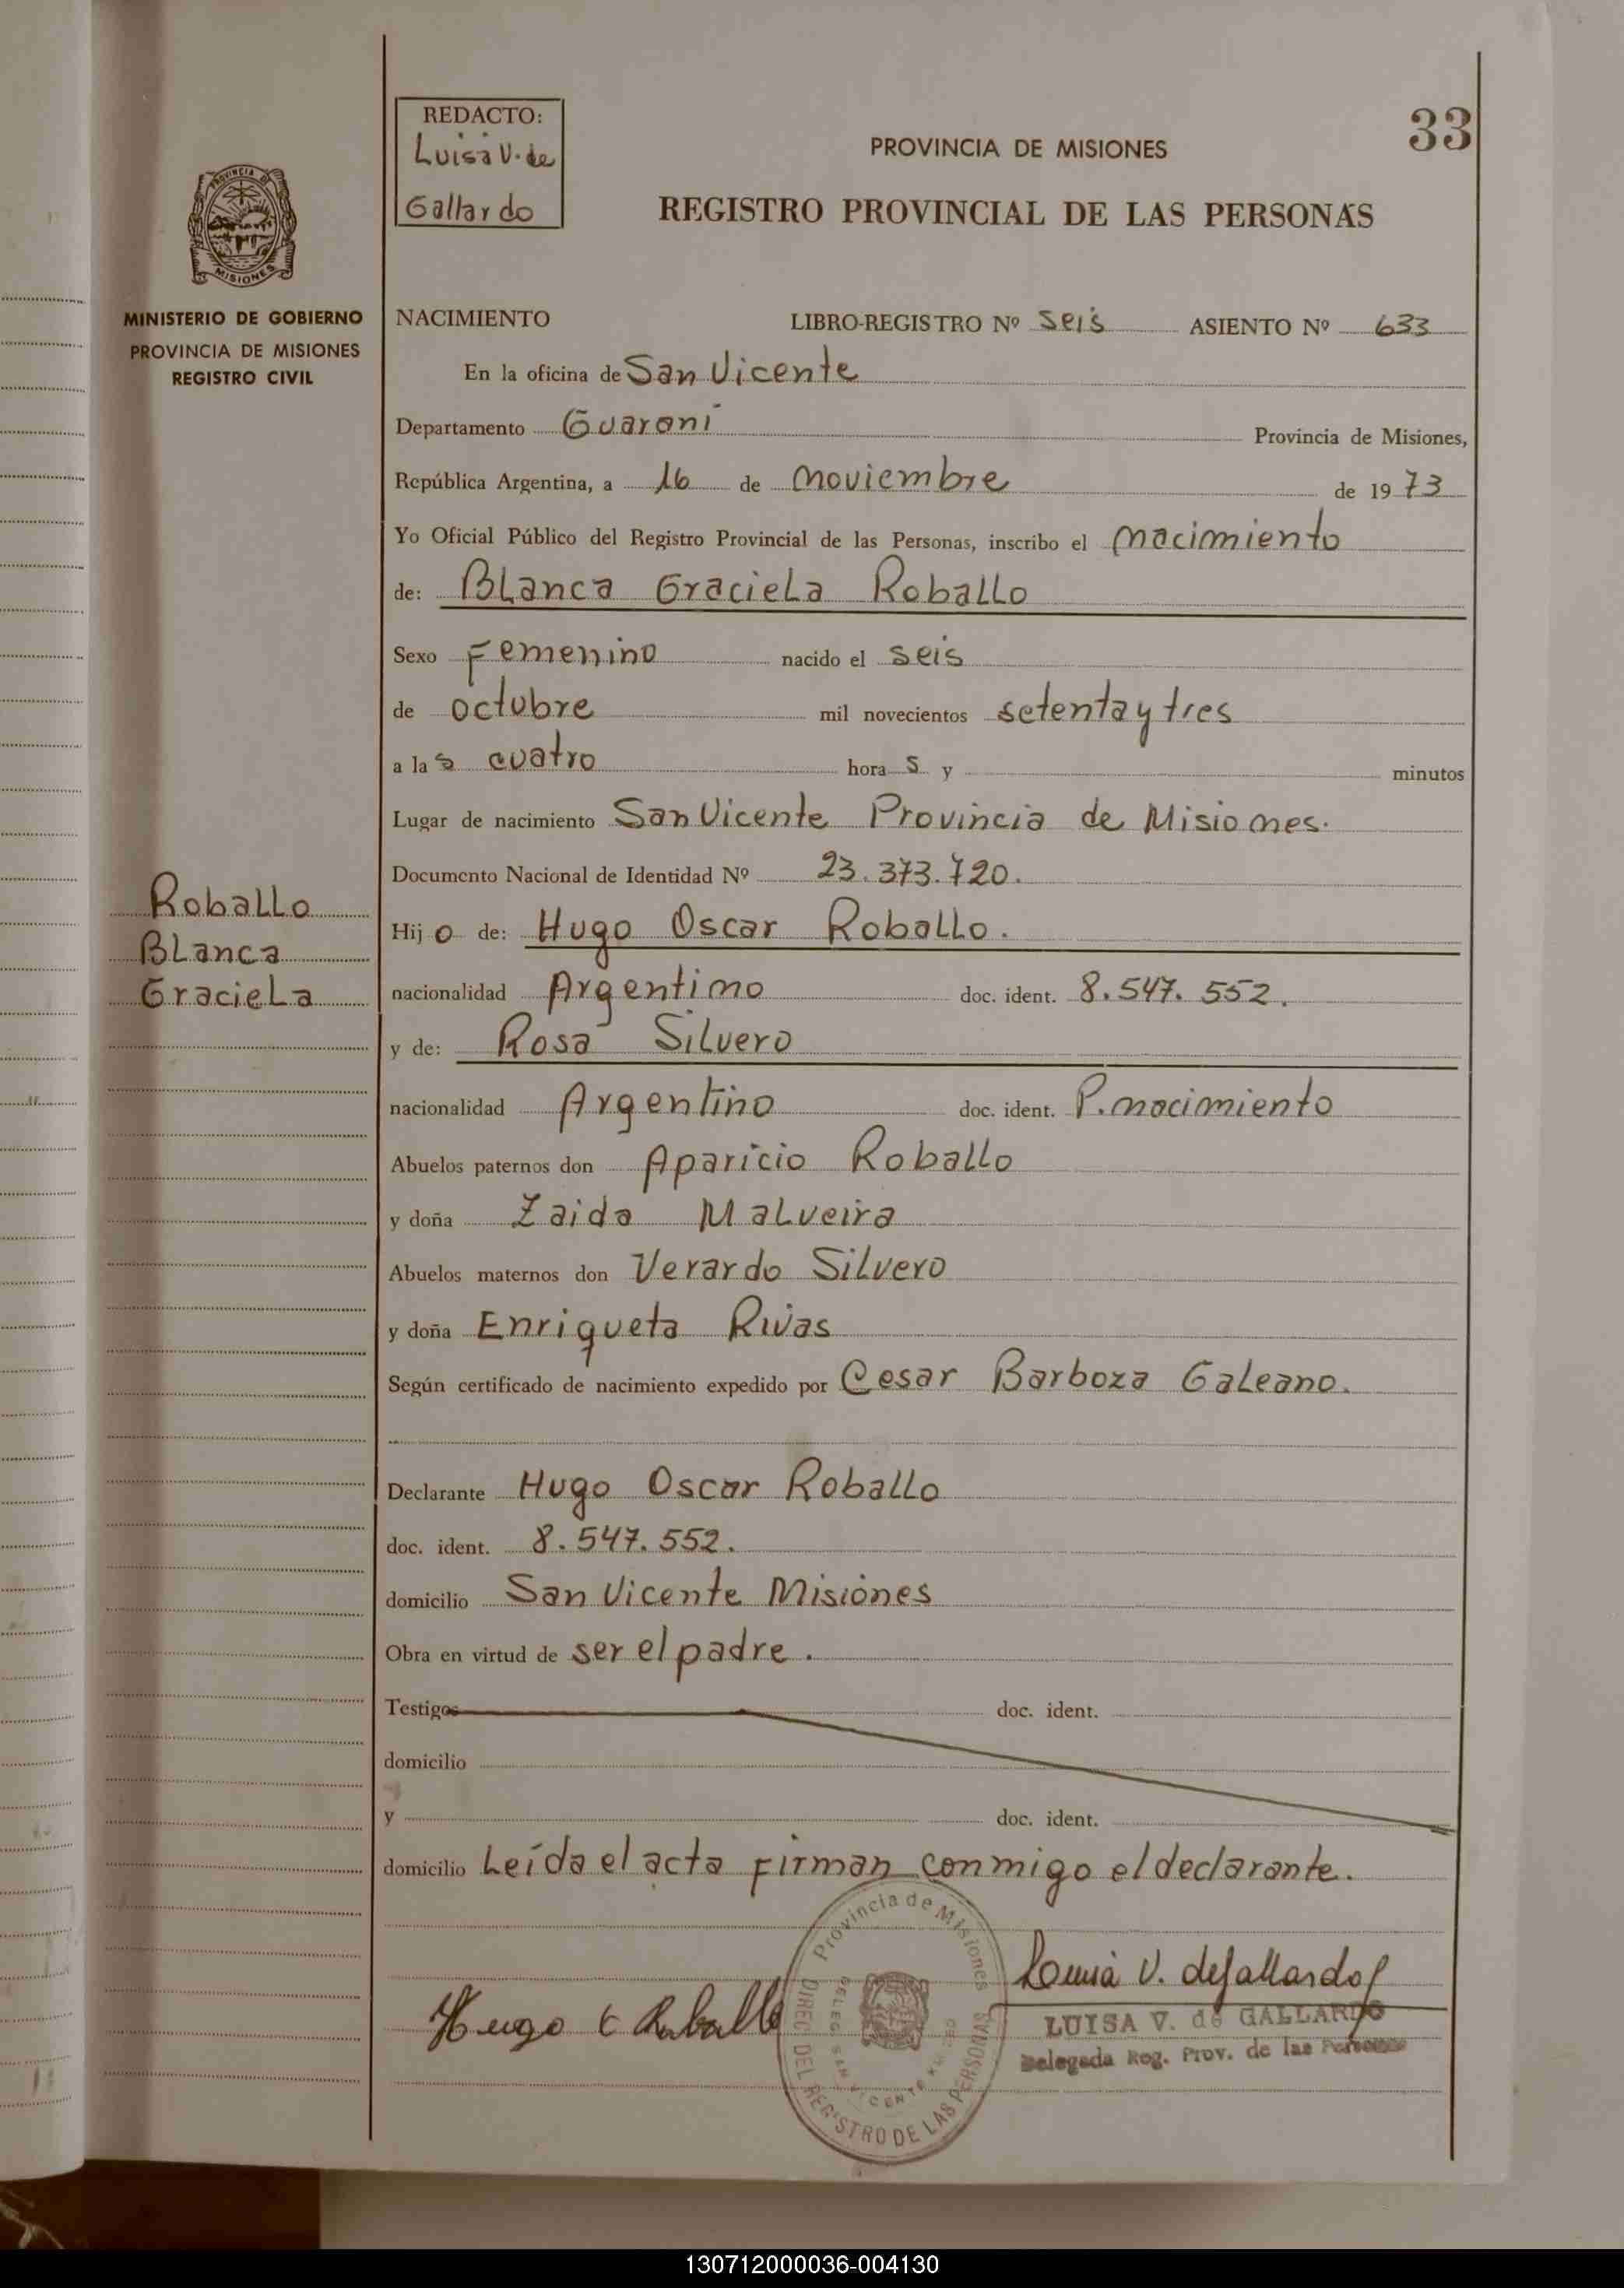 33
REDACTO:
Luisa V. de
Gallardo
PROVINCIA DE MISIONES
REGISTRO PROVINCIAL DE LAS PERSONAS
PROVINCIA DE
MISIONES
MINISTERIO DE GOBIERNO
PROVINCIA DE MISIONES
REGISTRO CIVIL
NACIMIENTO LIBRO-REGISTRO Nº seis ASIENTO Nº 633
En la oficina de San Vicente
Departamento Guaraní Provincia de Misiones,
República Argentina, a 16 de noviembre de 1973
Yo Oficial Público del Registro Provincial de las Personas, inscribo el nacimiento
de: Blanca Graciela Roballo
Sexo Femenino nacido el seis
de octubre mil novecientos setenta y tres
a las cuatro horas y minutos
Lugar de nacimiento San Vicente Provincia de Misiones.
Documento Nacional de Identidad Nº 23.373.720.
Roballo
Blanca
Graciela
Hijo de: Hugo Oscar Roballo.
nacionalidad Argentino doc. ident. 8.547.552.
y de: Rosa Silvero
nacionalidad Argentino doc. ident. P. nacimiento
Abuelos paternos don Aparicio Roballo
y doña Zaida Malveira
Abuelos maternos don Verardo Silvero
y doña Enriqueta Rivas
Según certificado de nacimiento expedido por Cesar Barboza Galeano.
Declarante Hugo Oscar Roballo
doc. ident. 8.547.552.
domicilio San Vicente Misiones
Obra en virtud de ser el padre.
Testigos doc. ident.
domicilio
y doc. ident.
domicilio Leída el acta firman conmigo el declarante.
Provincia de Misiones
DIREC. DEL REGISTRO DE LAS PERSONAS
DELEG. SAN VICENTE
Hugo O Roballo
Luisa V. de Gallardo
LUISA V. de GALLARDO
Delegada Reg. Prov. de las Personas
130712000036-004130